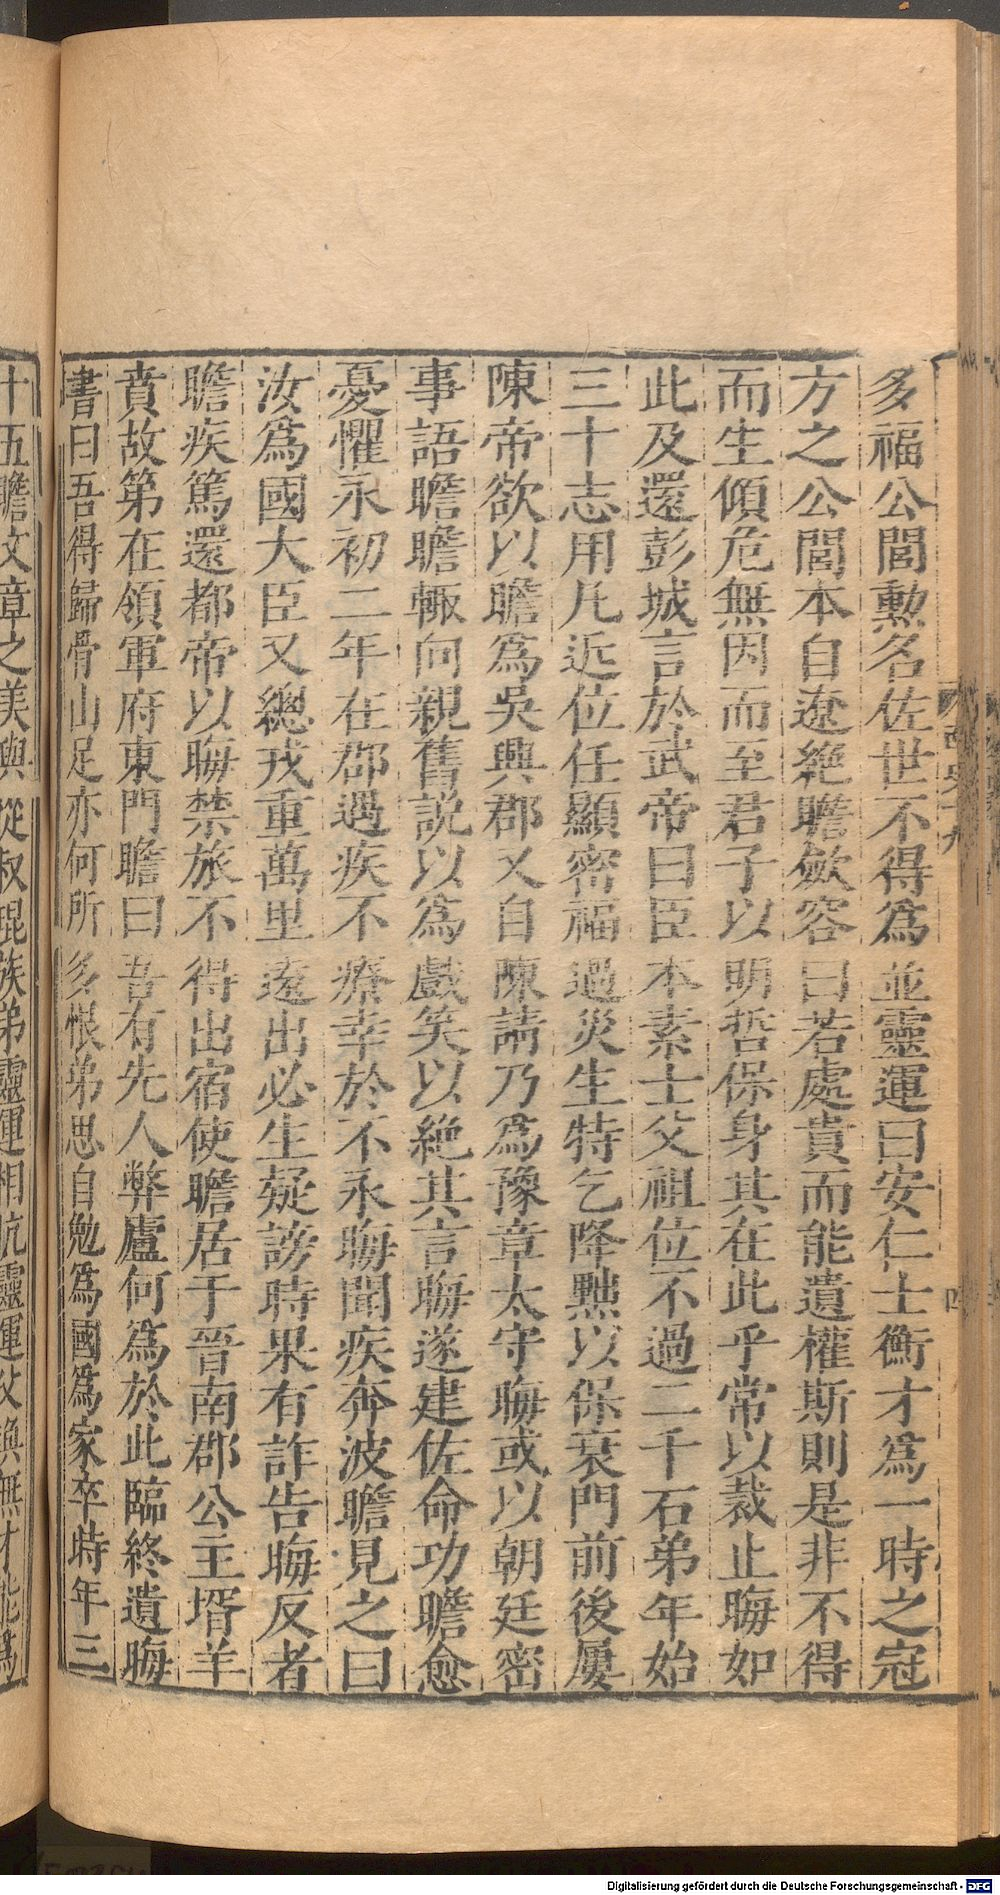 多福公閭勲名佐世不得為並靈運曰安仁士衡才為一時之冠
方之公閭本自遼絶瞻斂容曰若處貴而能遺權斯則是非不得
而生傾危無因而至君子以明哲保身其在此乎常以裁止晦如
此及還彭城言於武帝曰臣本素士父祖位不過二千石弟年始
三十志用凡近位任顯密福過災生特乞降黜以保衰門前後屢
陳帝欲以瞻為吳興郡又自陳請乃為豫章太守晦或以朝廷密
事語瞻瞻輙向親舊説以為戲笑以絶其言晦遂建佐命功瞻愈
憂懼永初二年在郡遇疾不療幸於不永晦聞疾奔波瞻見之曰
汝為國大臣又總戎重萬里遠出必生疑謗時果有詐告晦反者
瞻疾篤還都帝以晦禁旅不得出宿使瞻居于晉南郡公主壻羊
賁故第在領軍府東門瞻曰吾有先人弊廬何為於此臨終遺晦
書曰吾得歸骨山足亦何所多恨弟思自勉為國為家卒時年三
十五瞻文章之美與從叔琨族弟靈運相抗靈運父瑍無才能為
四
Digitalisierung gefördert durch die Deutsche Forschungsgemeinschaft - DFG